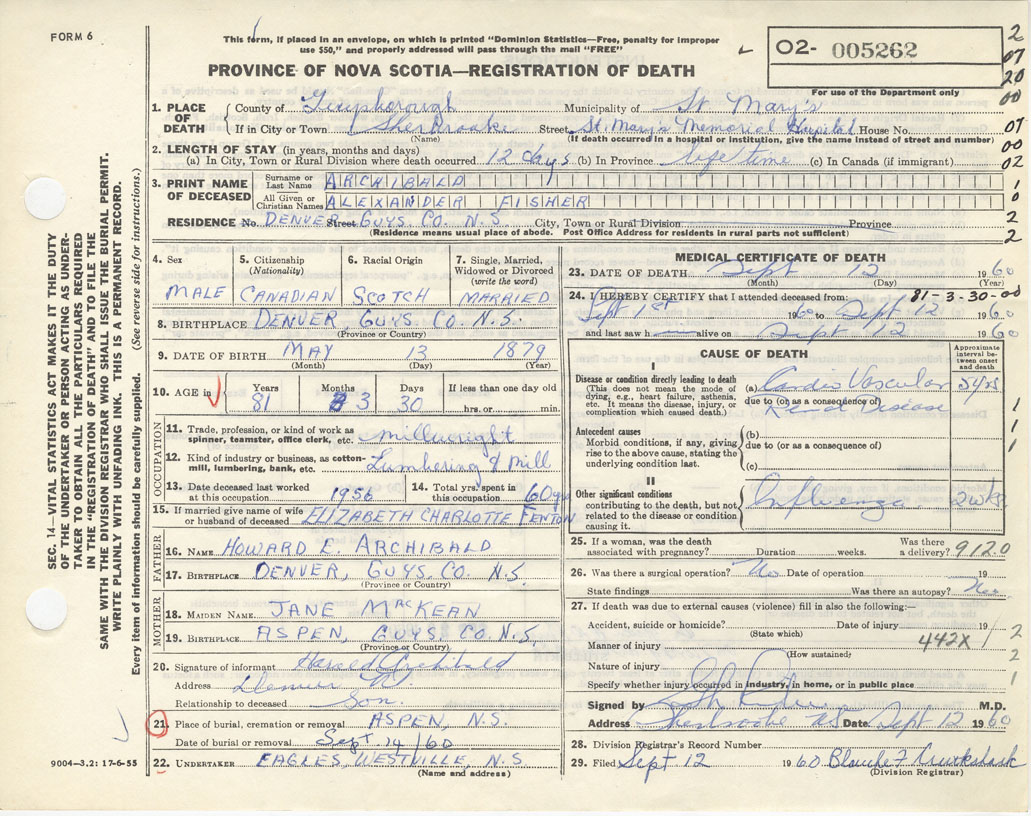 FORM 6
This form, if placed in an envelope, on which is printed "Dominion Statistics—Free, penalty for improper
use $50," and properly addressed will pass through the mail "FREE"
PROVINCE OF NOVA SCOTIA—REGISTRATION OF DEATH
02- 005262
For use of the Department only
2
07
20
00
07
00
02
1
0
2
2
SEC. 14—VITAL STATISTICS ACT MAKES IT THE DUTY
OF THE UNDERTAKER OR PERSON ACTING AS UNDER-
TAKER TO OBTAIN ALL THE PARTICULARS REQUIRED
IN THE "REGISTRATION OF DEATH" AND TO FILE THE
SAME WITH THE DIVISION REGISTRAR WHO SHALL ISSUE THE BURIAL PERMIT.
WRITE PLAINLY WITH UNFADING INK. THIS IS A PERMANENT RECORD.
Every item of information should be carefully supplied. (See reverse side for instructions.)
1. PLACE OF DEATH County of Guysborough Municipality of St Mary's
If in City or Town Sherbrooke Street St. Mary's Memorial Hospital House No.
(Name) (If death occurred in a hospital or institution, give the name instead of street and number)
2. LENGTH OF STAY (in years, months and days)
(a) In City, Town or Rural Division where death occurred 12 days (b) In Province life time (c) In Canada (if immigrant)
3. PRINT NAME OF DECEASED Surname or Last Name ARCHIBALD
All Given or Christian Names ALEXANDER FISHER
RESIDENCE No. DENVER Street GUYS. CO. N.S City, Town or Rural Division Province
(Residence means usual place of abode. Post Office Address for residents in rural parts not sufficient)
4. Sex MALE
5. Citizenship (Nationality) CANADIAN
6. Racial Origin SCOTCH
7. Single, Married, Widowed or Divorced (write the word) MARRIED
8. BIRTHPLACE DENVER GUYS. CO. N.S.
(Province or Country)
9. DATE OF BIRTH MAY 13 1879
(Month) (Day) (Year)
10. AGE in Years 81 Months 3 Days 30 If less than one day old hrs. or min.
OCCUPATION
11. Trade, profession, or kind of work as spinner, teamster, office clerk, etc. millwright
12. Kind of industry or business, as cotton-mill, lumbering, bank, etc. Lumbering & Mill
13. Date deceased last worked at this occupation 1956
14. Total yrs. spent in this occupation 60 yrs
15. If married give name of wife or husband of deceased ELIZABETH CHARLOTTE FENTON
FATHER
16. NAME HOWARD E. ARCHIBALD
17. BIRTHPLACE DENVER, GUYS. CO. N.S.
(Province or Country)
MOTHER
18. MAIDEN NAME JANE MACKEAN
19. BIRTHPLACE ASPEN, GUYS. CO. N.S.
(Province or Country)
20. Signature of informant Harold Archibald
Address Denver
Relationship to deceased Son.
21. Place of burial, cremation or removal ASPEN, N.S.
Date of burial or removal Sept 14/60
22. UNDERTAKER EAGLES, WESTVILLE, N.S
(Name and address)
9004—3.2: 17-6-55
MEDICAL CERTIFICATE OF DEATH
23. DATE OF DEATH Sept 12 1960
(Month) (Day) (Year)
24. I HEREBY CERTIFY that I attended deceased from: 81-3-30-00
Sept 1st 1960 to Sept 12 1960
and last saw h alive on Sept 12 1960
CAUSE OF DEATH
Approximate interval between onset and death
I
Disease or condition directly leading to death
(This does not mean the mode of dying, e.g., heart failure, asthenia, etc. It means the disease, injury, or complication which caused death.)
(a) Cardio Vascular 5 yrs
due to (or as a consequence of)
Renal Disease
Antecedent causes
Morbid conditions, if any, giving rise to the above cause, stating the underlying condition last.
(b)
due to (or as a consequence of)
(c)
II
Other significant conditions contributing to the death, but not related to the disease or condition causing it.
Influenza 2 wks
1
1
1
25. If a woman, was the death associated with pregnancy? Duration weeks. Was there a delivery? 9120
26. Was there a surgical operation? No Date of operation 19
State findings Was there an autopsy?
27. If death was due to external causes (violence) fill in also the following:—
Accident, suicide or homicide? Date of injury 19
(State which)
Manner of injury 442X
(How sustained)
Nature of injury
Specify whether injury occurred in industry, in home, or in public place
1
2
2
1
Signed by M.D.
Address Sherbrooke NS Date Sept 12 1960
28. Division Registrar's Record Number
29. Filed Sept 12 1960 Blanche F Cruikshank
(Division Registrar)